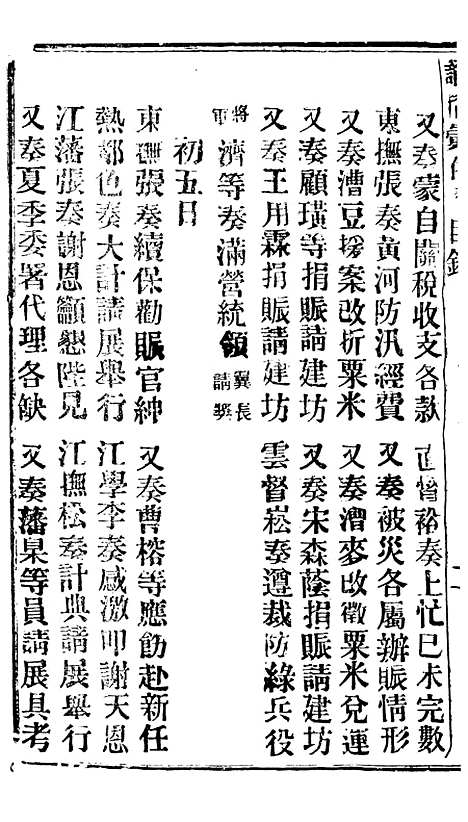 諭摺彙存 目錄
又奏蒙自關稅收支各款
直督裕奏上忙已未完數
東撫張奏黃河防汛經費
又奏被災各屬辦賑情形
又奏漕豆援案改折粟米
又奏漕麥改徵粟米兌運
又奏顧璜等捐賑請建坊
又奏宋森蔭捐賑請建坊
又奏王用霖捐賑請建坊
雲督崧奏遵裁防綠兵役
將軍濟等奏滿營統領翼長請獎
初五日
東撫張奏續保勸賑官紳
又奏曹榕等應飭赴新任
熱都色奏大計請展舉行
江學李奏感激叩謝天恩
江藩張奏謝恩籲懇陛見
江撫松奏計典請展舉行
又奏夏季委署代理各缺
又奏藩臬等員請展具考